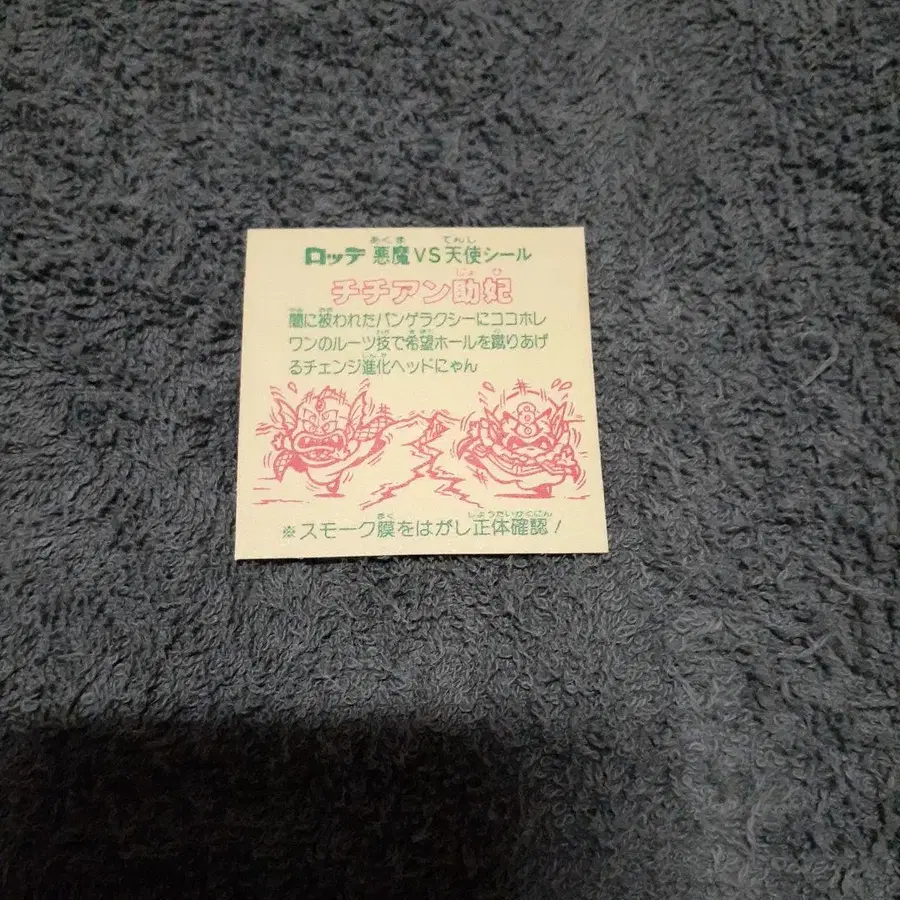 ロッテ 悪魔VS天使シール
チチアン助妃
闇に被われたパンゲラクシーにココホレ
ワンのルーツ技で希望ホールを蹴りあげ
るチェンジ進化ヘッドにゃん
8
※スモーク膜をはがし正体確認!